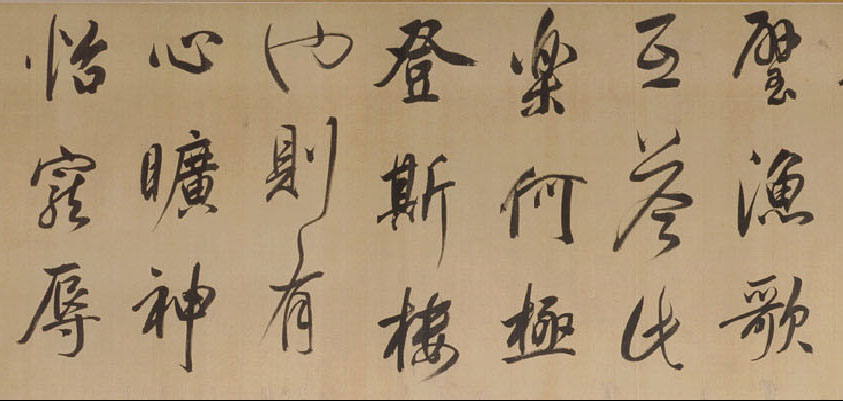 璧漁歌
互荅此
樂何極
登斯樓
也則有
心曠神
怡寵辱